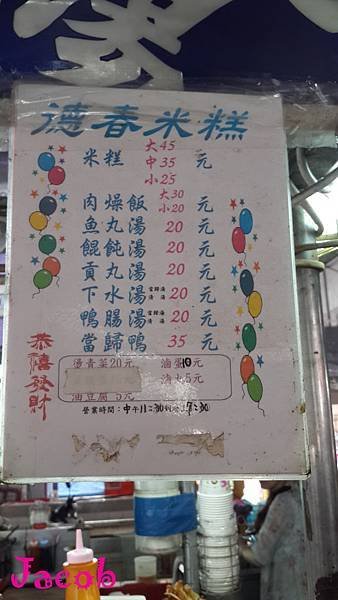 德春米糕
米糕 大45 中35 小25 元
肉燥飯 大30 小20 元
魚丸湯 20 元
餛飩湯 20 元
貢丸湯 20 元
下水湯 當歸湯 清湯 20 元
鴨腸湯 當歸湯 清湯 20 元
當歸鴨 35 元
燙青菜20元 滷蛋10元
滷丸5元
油豆腐 5元
營業時間:中午11:30到晚
恭禧發財
Jacob